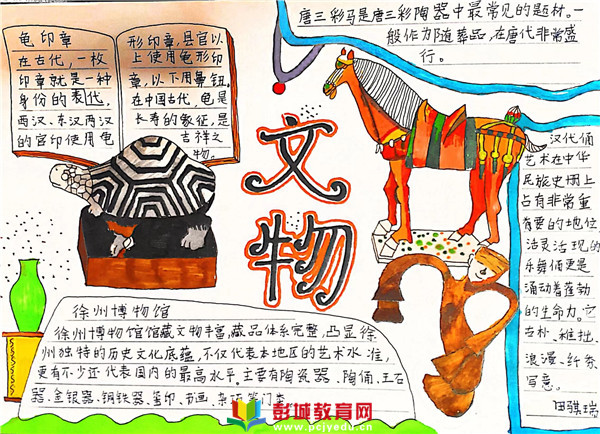 龟印章
在古代，一枚
印章就是一种
身份的表代，
西汉、东汉两汉
的官印使用龟
形印章，县官以
上使用龟形印
章，以下用鼻钮，
在中国古代，龟是
长寿的象征，是
吉祥文
物。
唐三彩马是唐三彩陶器中最常见的题材。一
般作为随葬品，在唐代非常盛
行。
文物
汉代俑
艺术在中华
民族史册上
占有非常重
要的地位，
活灵活现的
乐舞俑更是
涌动着蓬勃
的生命力。它
古朴、稚拙、
浪漫、纤柔、
写意。
田骐瑞
徐州博物馆
徐州博物馆馆藏文物丰富，藏品体系完整，凸显徐
州独特的历史文化底蕴，不仅代表本地区的艺术水准，
更有不少还代表国内的最高水平。主要有陶瓷器、陶俑、玉石
器、金银器、铜铁器、玺印、书画、杂项等门类。
彭城教育网
www.pcjyedu.cn